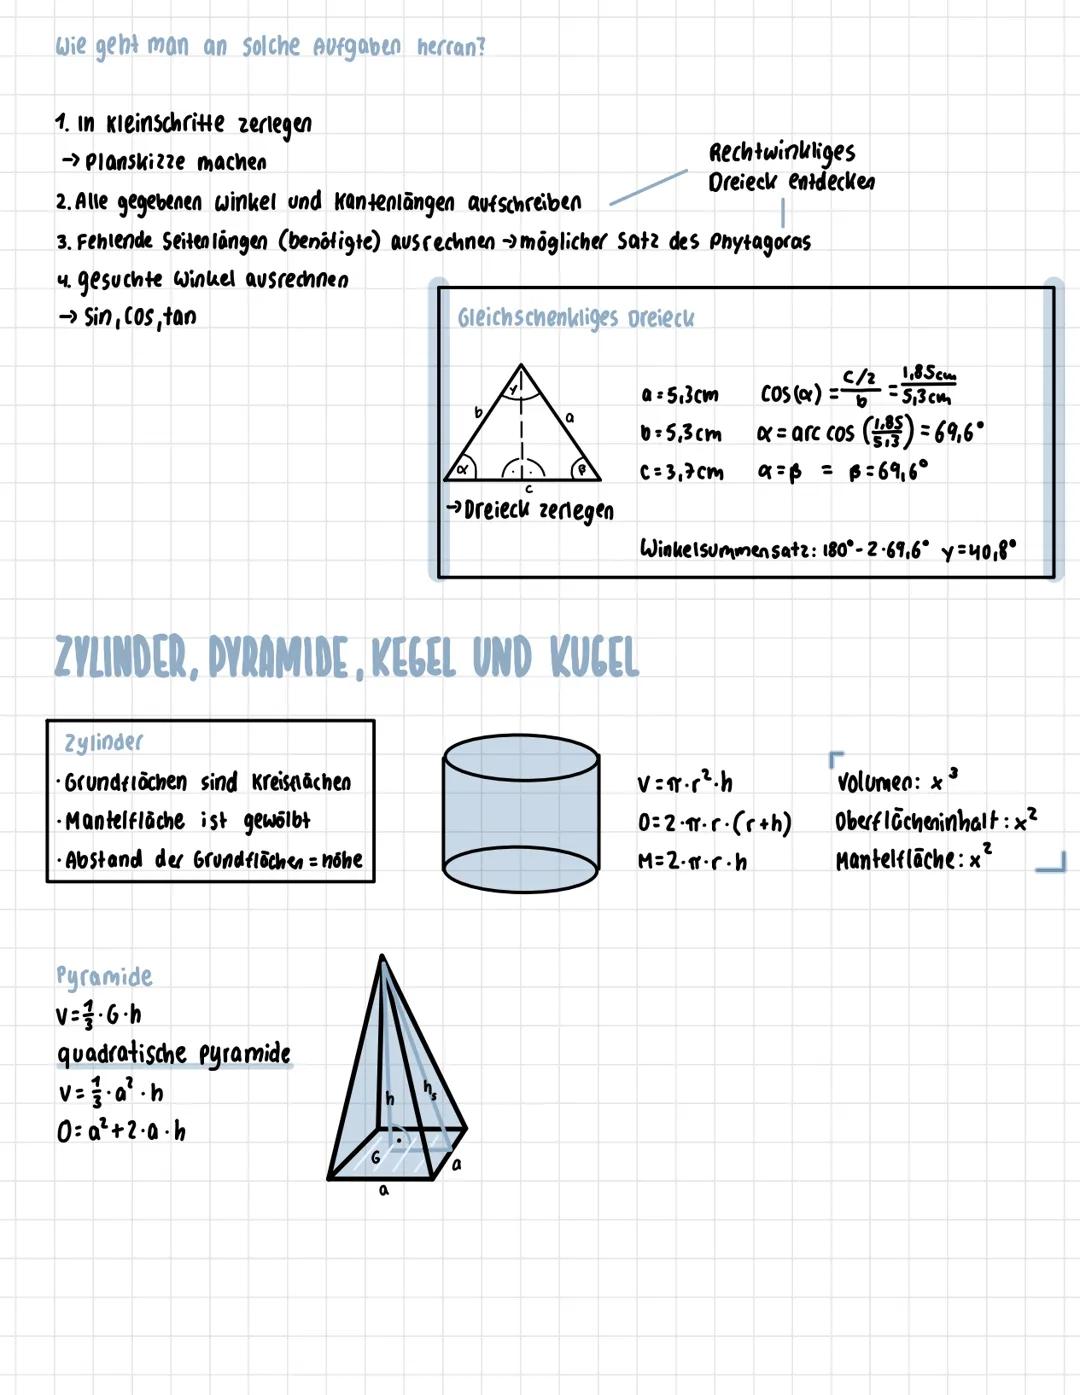 Wie geht man an solche Aufgaben herran?
1. In Kleinschritte zerlegen
→ Planskizze machen
Rechtwinkliges
Dreieck entdecken
2. Alle gegebenen Winkel und Kantenlängen aufschreiben
3. Fehlende Seitenlängen (benötigte) ausrechnen → möglicher Satz des Phytagoras
4. gesuchte Winkel ausrechnen
→ Sin, Cos, tan
Gleichschenkliges Dreieck
γ
b
a
α
β
c
→ Dreieck zerlegen
a = 5,3cm cos(α) = c/2 / b = 1,85cm / 5,3cm
b = 5,3cm α = arc cos (1,85/5,3) = 69,6°
c = 3,7cm α = β = β = 69,6°
Winkelsummensatz: 180° - 2·69,6° γ = 40,8°
ZYLINDER, PYRAMIDE, KEGEL UND KUGEL
Zylinder
· Grundflächen sind Kreisflächen
· Mantelfläche ist gewölbt
· Abstand der Grundflächen = Höhe
V = π·r²·h
O = 2·π·r·(r+h)
M = 2·π·r·h
Volumen: x³
Oberflächeninhalt: x²
Mantelfläche: x²
Pyramide
V = 1/3 · G · h
quadratische Pyramide
V = 1/3 · a² · h
O = a² + 2·a·h
h
hₛ
G
a
a